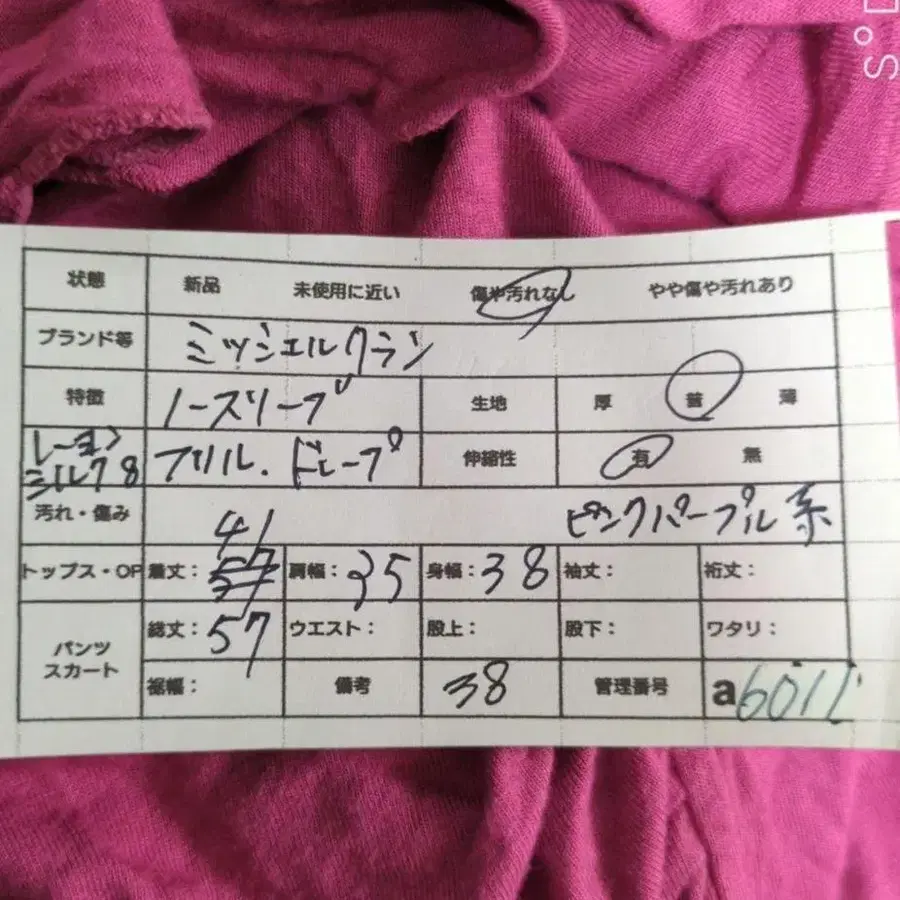 状態 新品 未使用に近い 傷や汚れなし やや傷や汚れあり
ブランド等 ミッシェルクラン
特徴 ノースリーブ 生地 厚 普 薄
レーヨン フリル.ドレープ 伸縮性 有 無
汚れ・傷み ピンクパープル系
41
トップス・OP 着丈: 57 肩幅: 35 身幅: 38 袖丈: 裄丈:
パンツ スカート 総丈: 57 ウエスト: 股上: 股下: ワタリ:
裾幅: 備考 38 管理番号 a6011